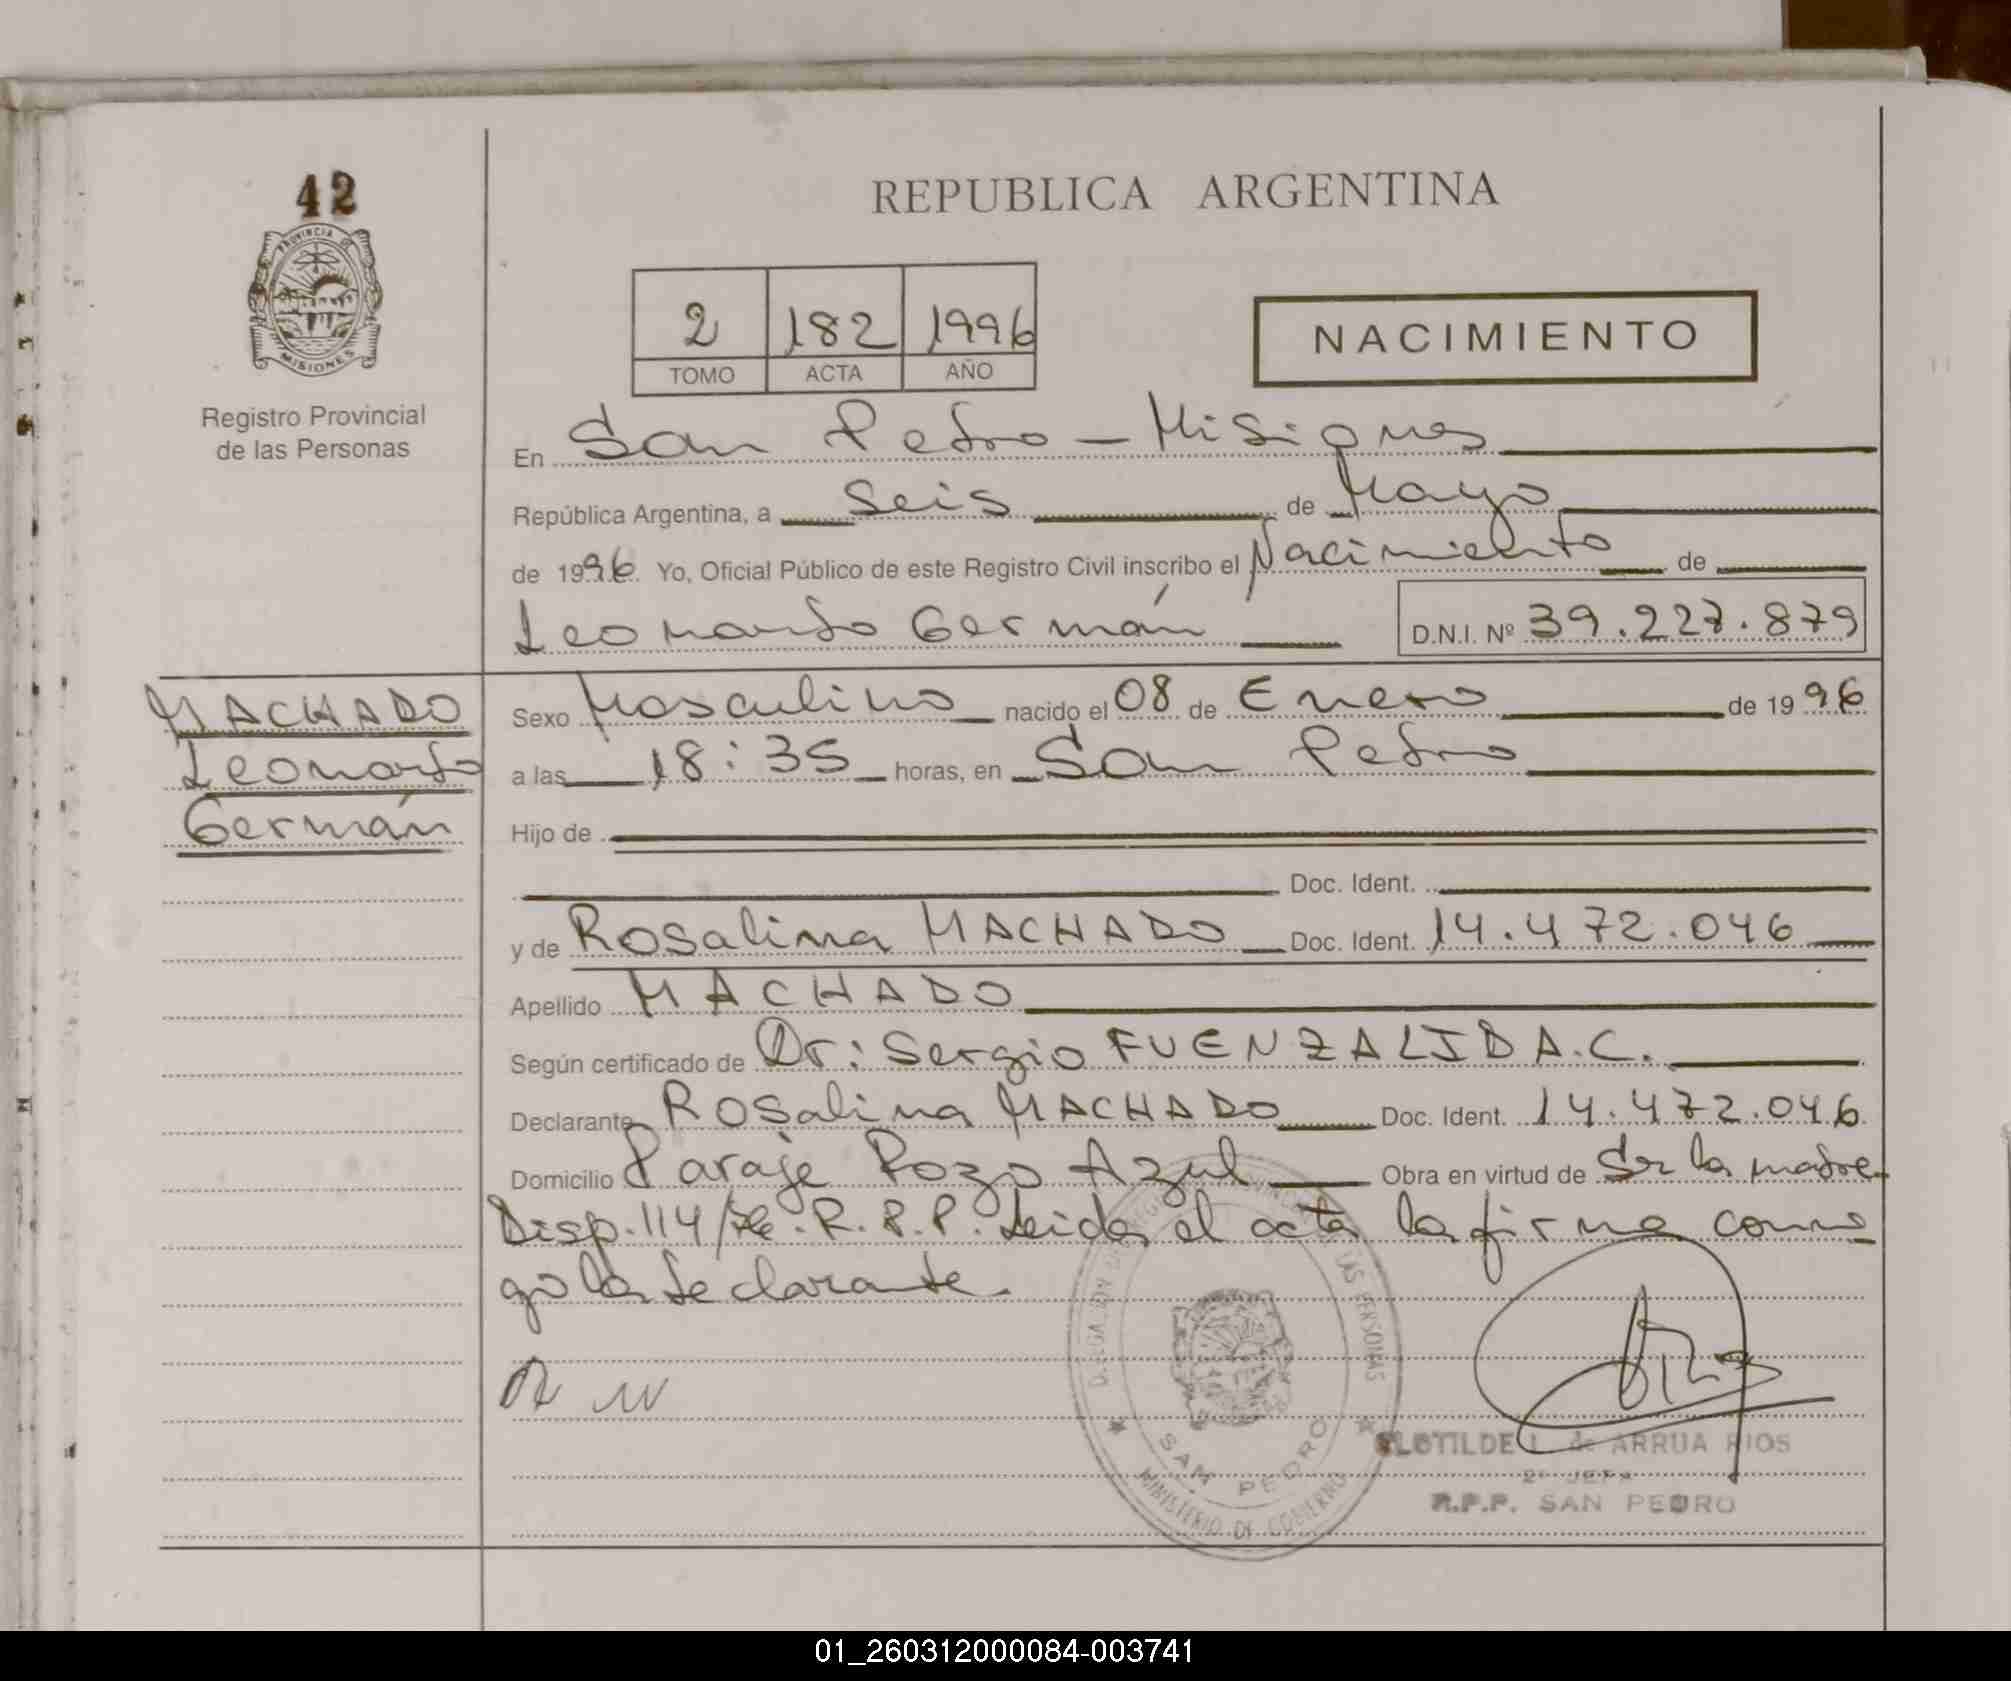 42
PROVINCIA DE
MISIONES
Registro Provincial
de las Personas
REPUBLICA ARGENTINA
2 182 1996
TOMO ACTA AÑO
NACIMIENTO
En San Pedro - Misiones
República Argentina, a Seis de Mayo
de 1996. Yo, Oficial Público de este Registro Civil inscribo el Nacimiento de
Leonardo Germán D.N.I. Nº 39.227.879
MACHADO
Leonardo
Germán
Sexo Masculino nacido el 08 de Enero de 1996
a las 18:35 horas, en San Pedro
Hijo de
Doc. Ident.
y de Rosalina MACHADO Doc. Ident. 14.472.046
Apellido MACHADO
Según certificado de Dr: Sergio FUENZALIDA.C.
Declarante Rosalina MACHADO Doc. Ident. 14.472.046
Domicilio Paraje Pozo Azul Obra en virtud de Ser la madre
Disp. 114/ R.P.P. Leida el acta la firma conmi
go la declarante.
LAS PERSONAS
SAN PEDRO
MINISTERIO DE GOBIERNO
CLOTILDE L. de ARRUA RIOS
2º JEFA
R.P.P. SAN PEDRO
01_260312000084-003741